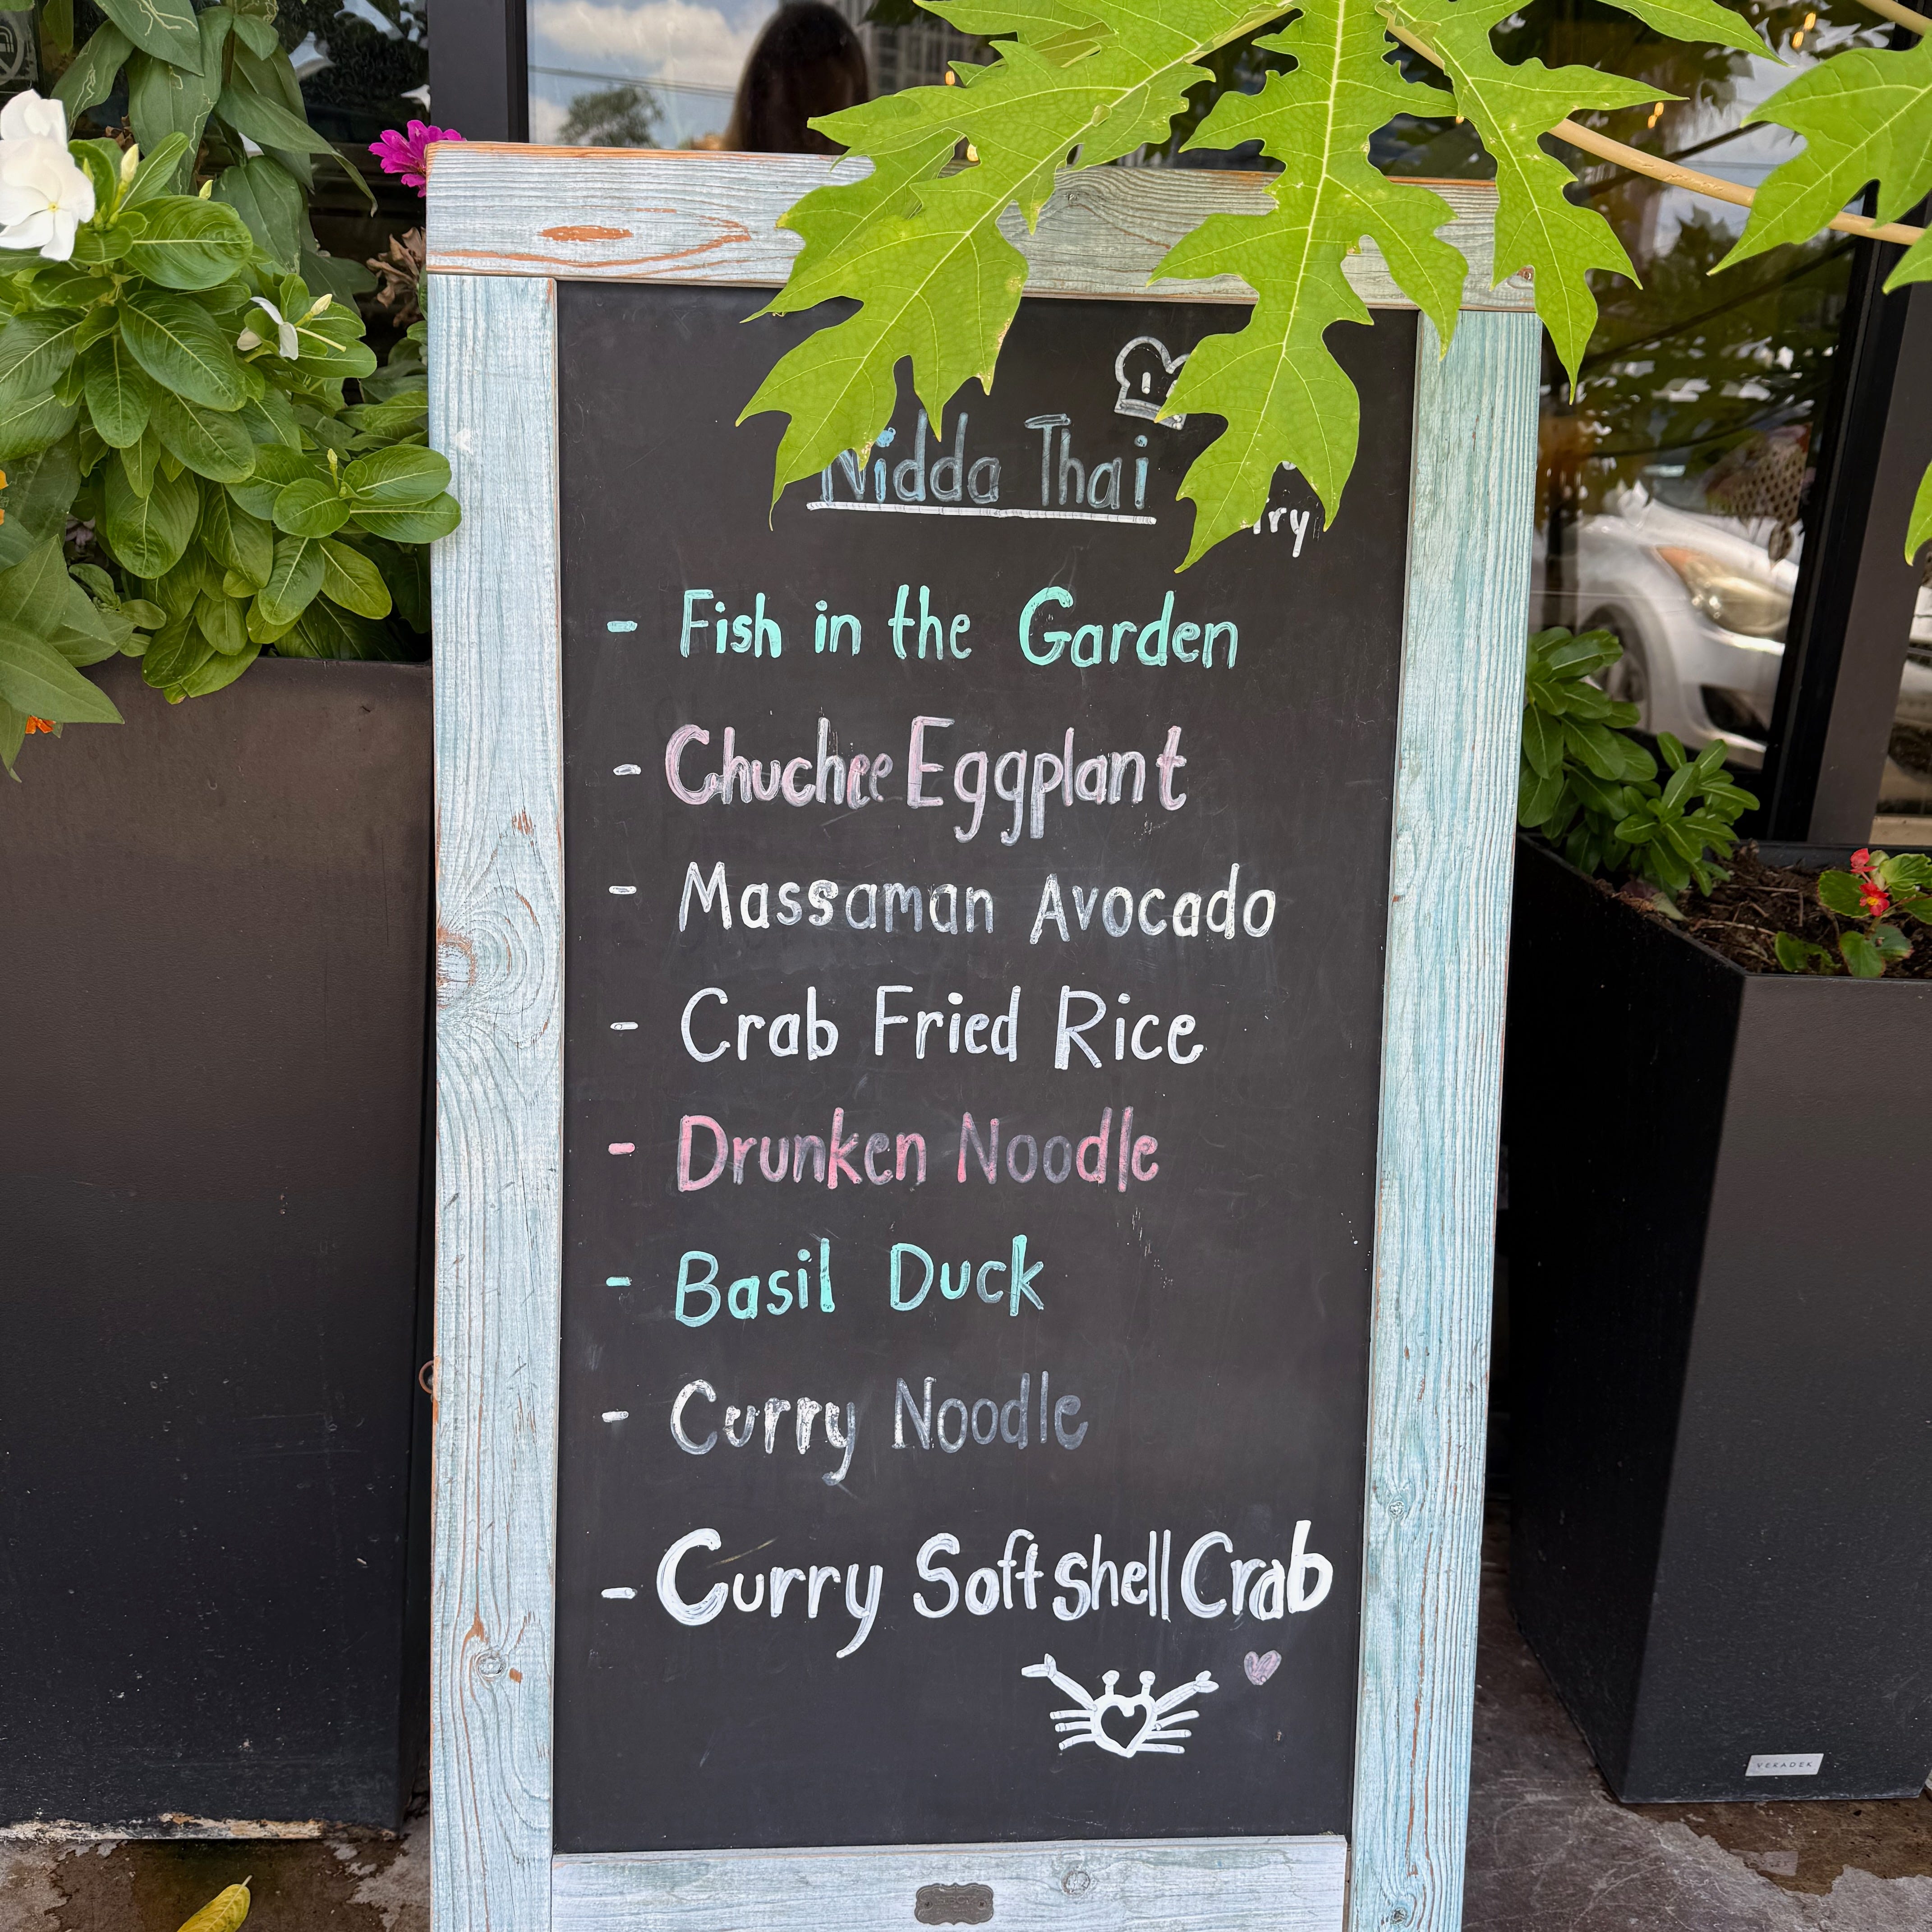 Nidda Thai
- Fish in the Garden
- Chuchee Eggplant
- Massaman Avocado
- Crab Fried Rice
- Drunken Noodle
- Basil Duck
- Curry Noodle
- Curry Soft shell Crab
VERADEK